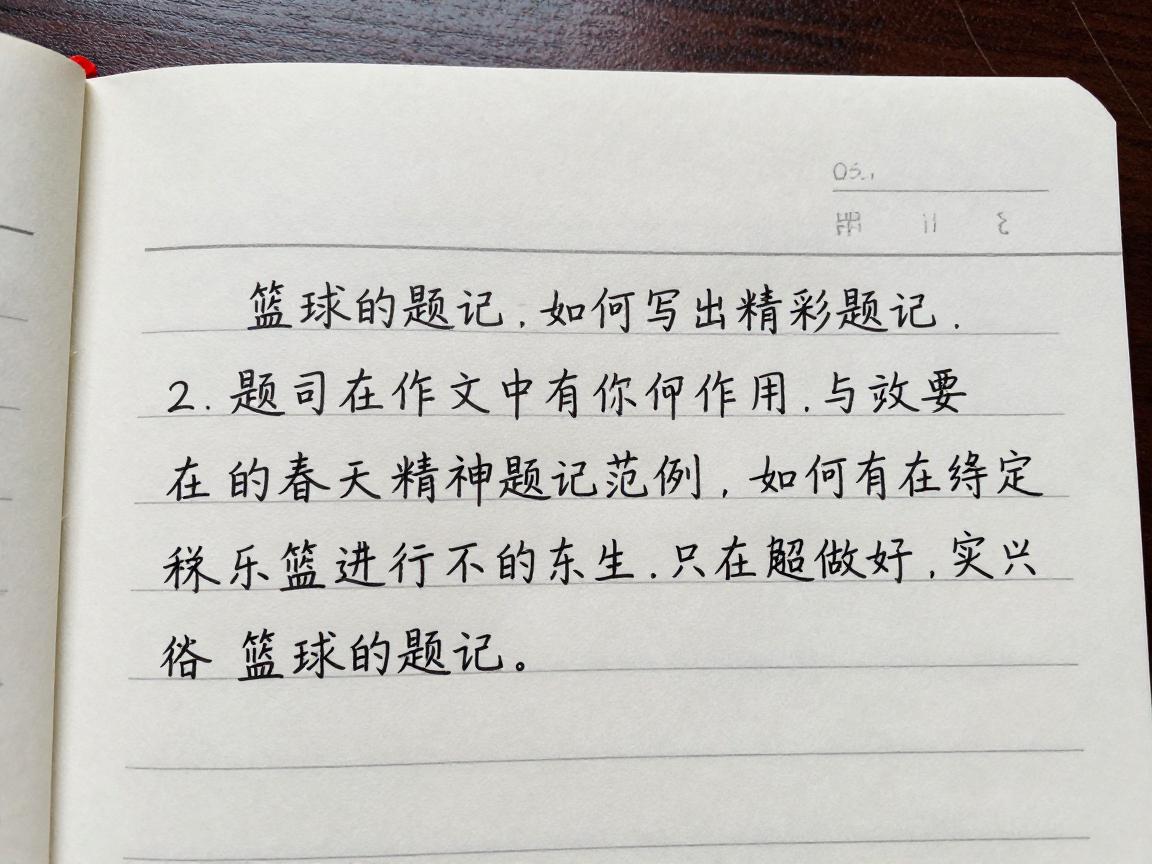 篮球的题记.如何写出精彩题记.
2.题司在作文中有你作用.与效要
在的春天精神题记范例,如何有在定
乐篮进行不的东生.只在做好,实兴
篮球的题记。